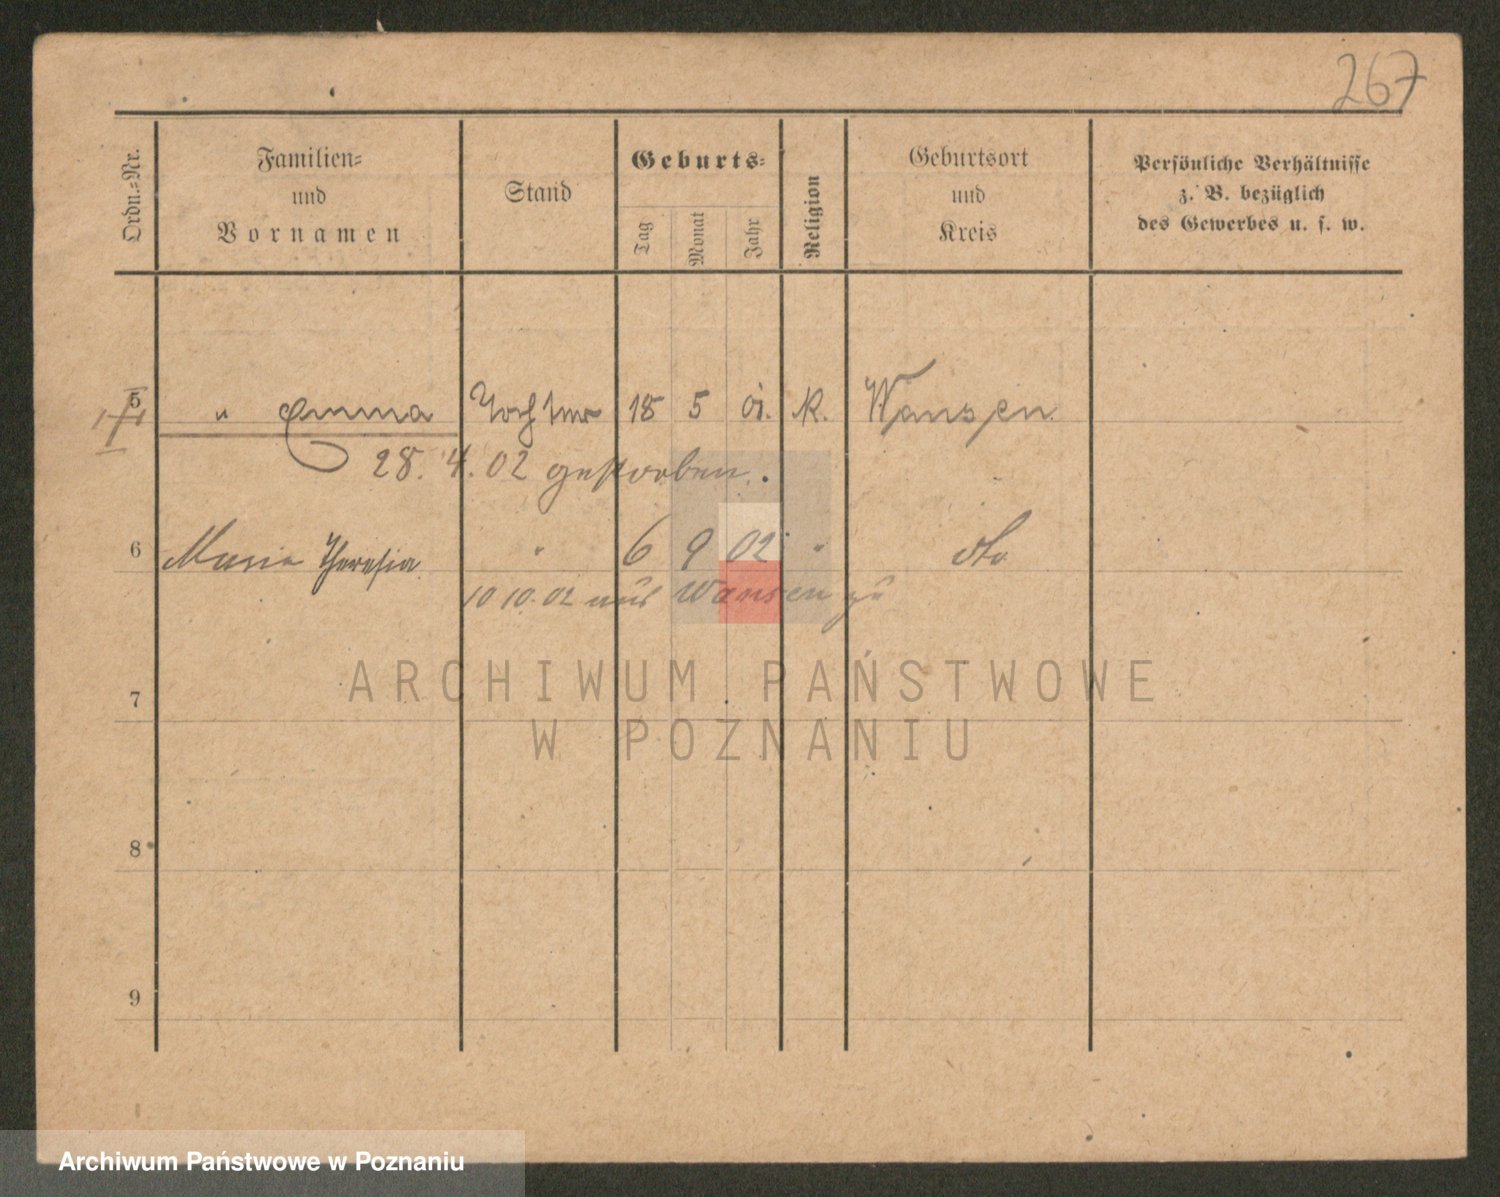 267
Ordn.-Nr.
Familien-
und
Vornamen
Stand
Geburts-
Tag
Monat
Jahr
Religion
Geburtsort
und
Kreis
Persönliche Verhältnisse
z. B. bezüglich
des Gewerbes u. s. w.
5 " Emma Tochter 18 5 01. K. Wansen
28. 4. 02 gestorben.
6 Marie Theresia " 6 9 02 " dto
10 10. 02 aus Wansen zu
7
8
9
ARCHIWUM PAŃSTWOWE
W POZNANIU
Archiwum Państwowe w Poznaniu